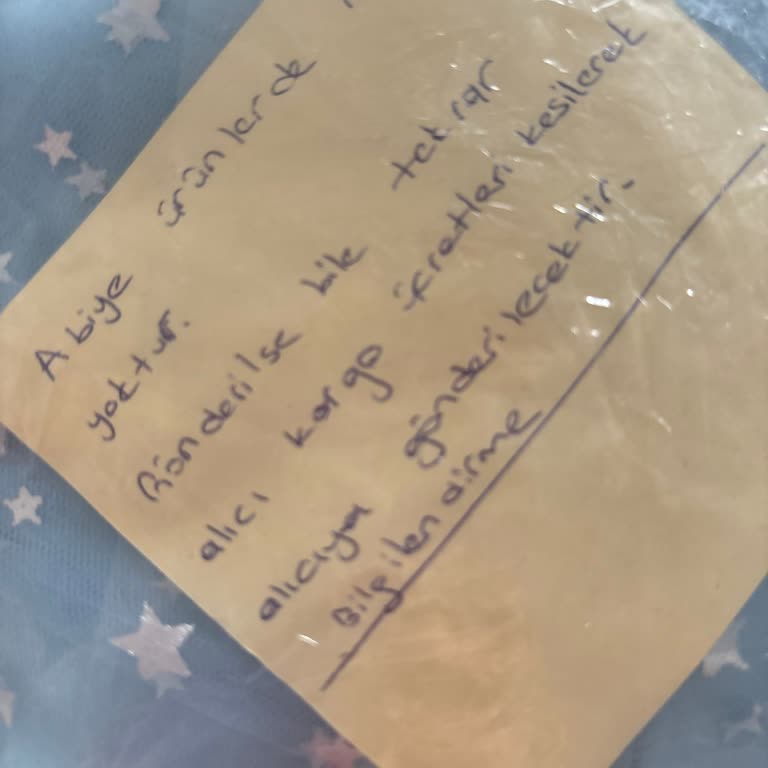 Abiye ürünlerde
yoktur.
Gönderilse bile tekrar
alıcı kargo ücretleri kesilerek
alıcıya gönderilecektir.
Bilgilendirme